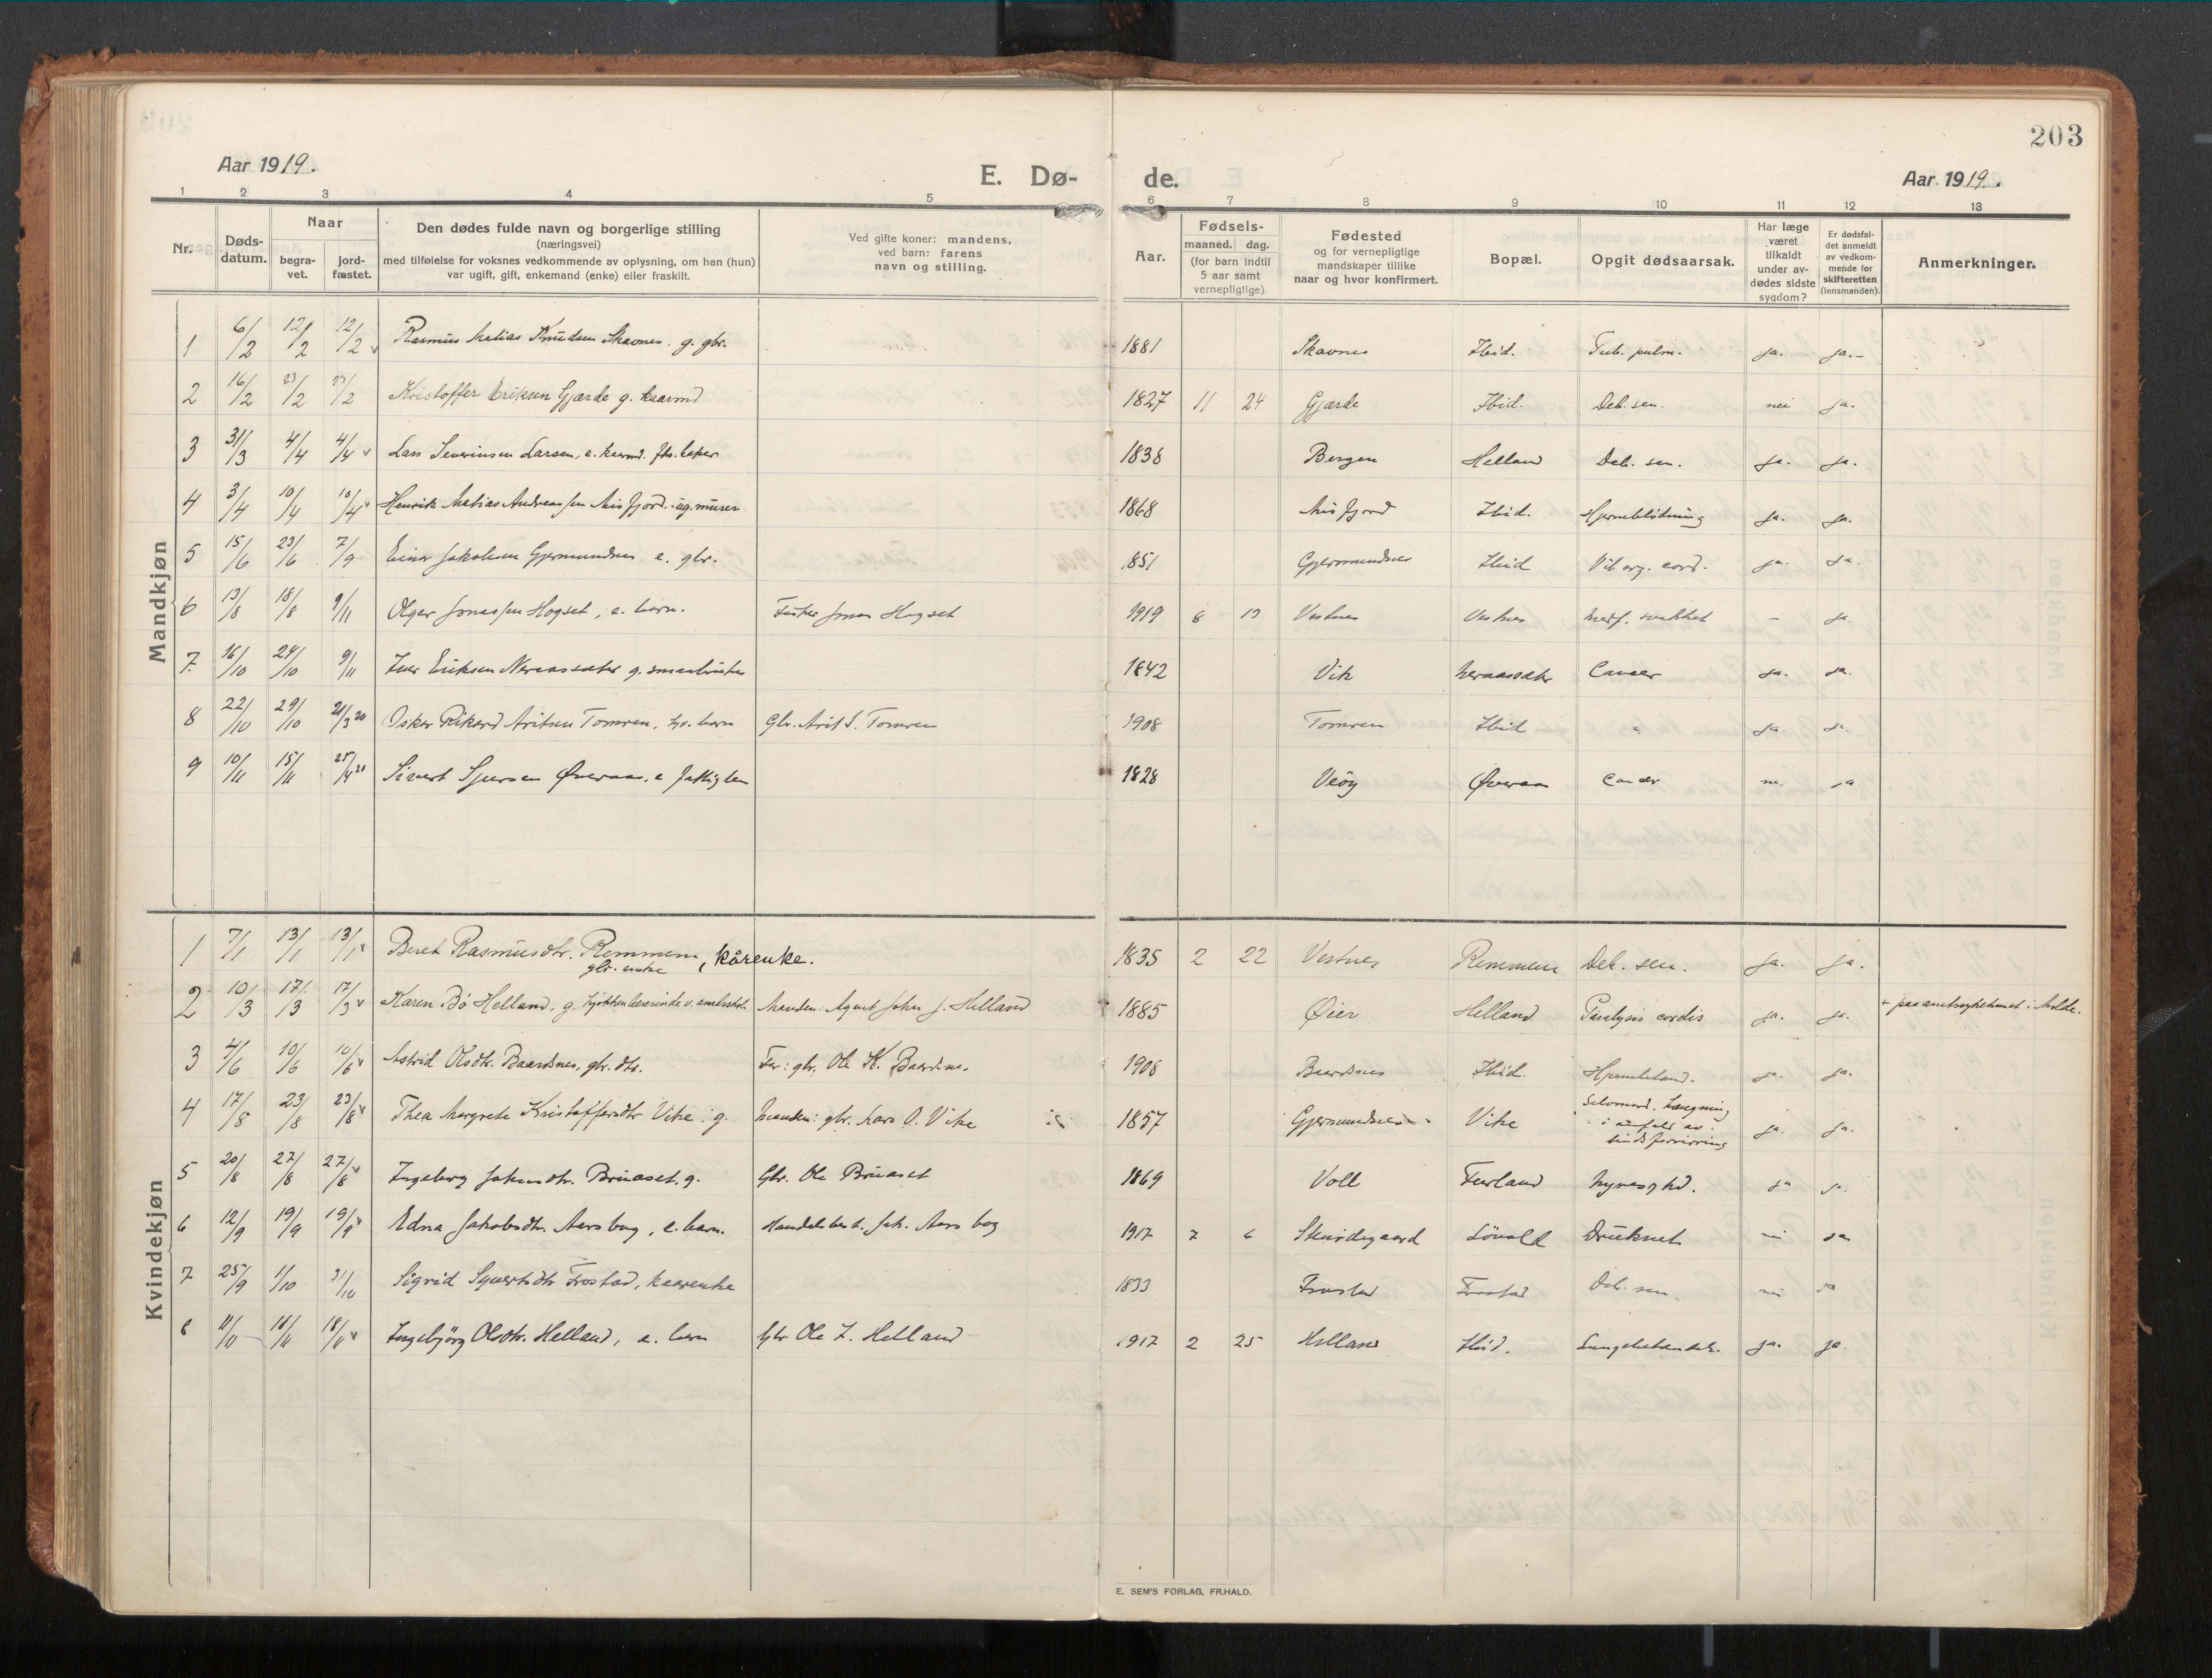 203
Aar 1919.
E. Dø-
de.
Aar 1919.
1 2 3 4 5 6 7 8 9 10 11 12 13
Nr.
Døds-
datum.
Naar
begra-
vet.
jord-
fæstet.
Den dødes fulde navn og borgerlige stilling
(næringsvei)
med tilføielse for voksnes vedkommende av oplysning, om han (hun)
var ugift, gift, enkemand (enke) eller fraskilt.
Ved gifte koner: mandens,
ved barn: farens
navn og stilling.
Aar.
Fødsels-
maaned. dag.
(for barn indtil
5 aar samt
vernepligtige)
Fødested
og for vernepligtige
mandskaper tillike
naar og hvor konfirmert.
Bopæl.
Opgit dødsaarsak.
Har læge
været
tilkaldt
under av-
dødes sidste
sygdom?
Er dødsfal-
det anmeldt
av vedkom-
mende for
skifteretten
(lensmanden).
Anmerkninger.
Mandkjøn
1 6/2 12/2 12/2 Rasmus Matias Knudsen Skavnes. g. gbr. 1881 Skavnes Ibid. Tub. pulm. ja. ja.
2 16/2 23/2 23/2 Kristoffer Eriksen Gjærde g. kaarmd 1827 11 24 Gjærde Ibid. Deb. sen. nei ja.
3 31/3 4/4 4/4 Lars Severinsen Larsen, e. kaarmd. 1838 Bergen Helland Deb. sen. ja. ja.
4 3/4 10/4 10/4 Henrik Matias Andreassen Misfjord. ug. murer 1868 Misfjord Ibid. Hjerneblødning ja. ja.
5 15/6 23/6 7/9 Einar Jakobsen Gjermundnes e. gbr. 1851 Gjermundnes Ibid Vit. org. cord. ja. ja.
6 13/8 18/8 9/11 Olger Jonassen Hogset, e. barn. Jonas Hogset 1919 8 13 Vestnes Vestnes medf. svakhet - ja.
7 16/10 24/10 9/11 Iver Eriksen Neraassæter g. smaabruker 1842 Vik Neraassæter Cancer ja. ja.
8 22/10 29/10 21/3 20 Oskar Rikard Aritsen Tomren, barn Gbr. Arit S. Tomren 1908 Tomren Ibid " ja. ja.
9 10/11 15/11 25/4 20 Sivert Sjursen Øveraas, e 1828 Veöy Øveraas Cancer ja
Kvindekjøn
1 7/1 13/1 13/1 Beret Rasmusdtr. Remmem, kårenke.
gbr. enke
1835 2 22 Vestnes Remmem Deb. sen. ja. ja.
2 10/3 17/3 17/3 Karen Bö Helland, g. Manden: Agent John J. Helland 1885 Øier Helland Paralysis cordis ja. ja. paa amtssykehuset i Molde.
3 4/6 10/6 10/6 Astrid Olsdtr. Baardsnes, gbr. dtr. Far: gbr. Ole K. Baardsnes 1908 Baardsnes Ibid. ja. ja.
4 17/8 23/8 23/8 Thea Margrete Kristoffersdtr Vike. g. Manden: gbr. Lars O. Vike 1857 Gjermundnes Vike Selvmord, hængning
i anfald av
sindsforvirring
ja. ja.
5 20/8 27/8 27/8 Ingeborg Johnsdtr. Bruaset. g. Gbr. Ole Bruaset 1869 Voll Furland Nyresykd. ja ja.
6 12/9 19/9 19/9 Edna Jakobsdtr. Aarsbog, e. barn. Handelsbest. Jak. Aarsbog 1917 7 6 Stenidegaard Løvold Druknet nei ja
7 25/9 1/10 31/10 Sigrid Syvertsdtr Frostad, kaarenke 1833 Frostad Frostad Deb. sen. nei ja
8 11/11 18/11 18/11 Ingebjörg Olsdtr. Helland, e. barn Gbr Ole L. Helland 1917 2 25 Helland Ibid. Lungebetændels. ja. ja.
E. SEM'S FORLAG, FR.HALD.